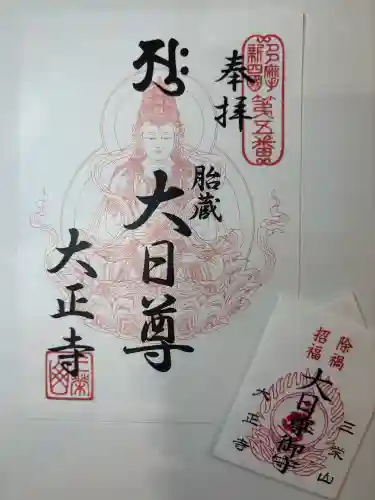 多摩新四国
第五番
奉拝
胎蔵
大日尊
大正寺
除禍
招福
大日尊御守
三栄山
大正寺